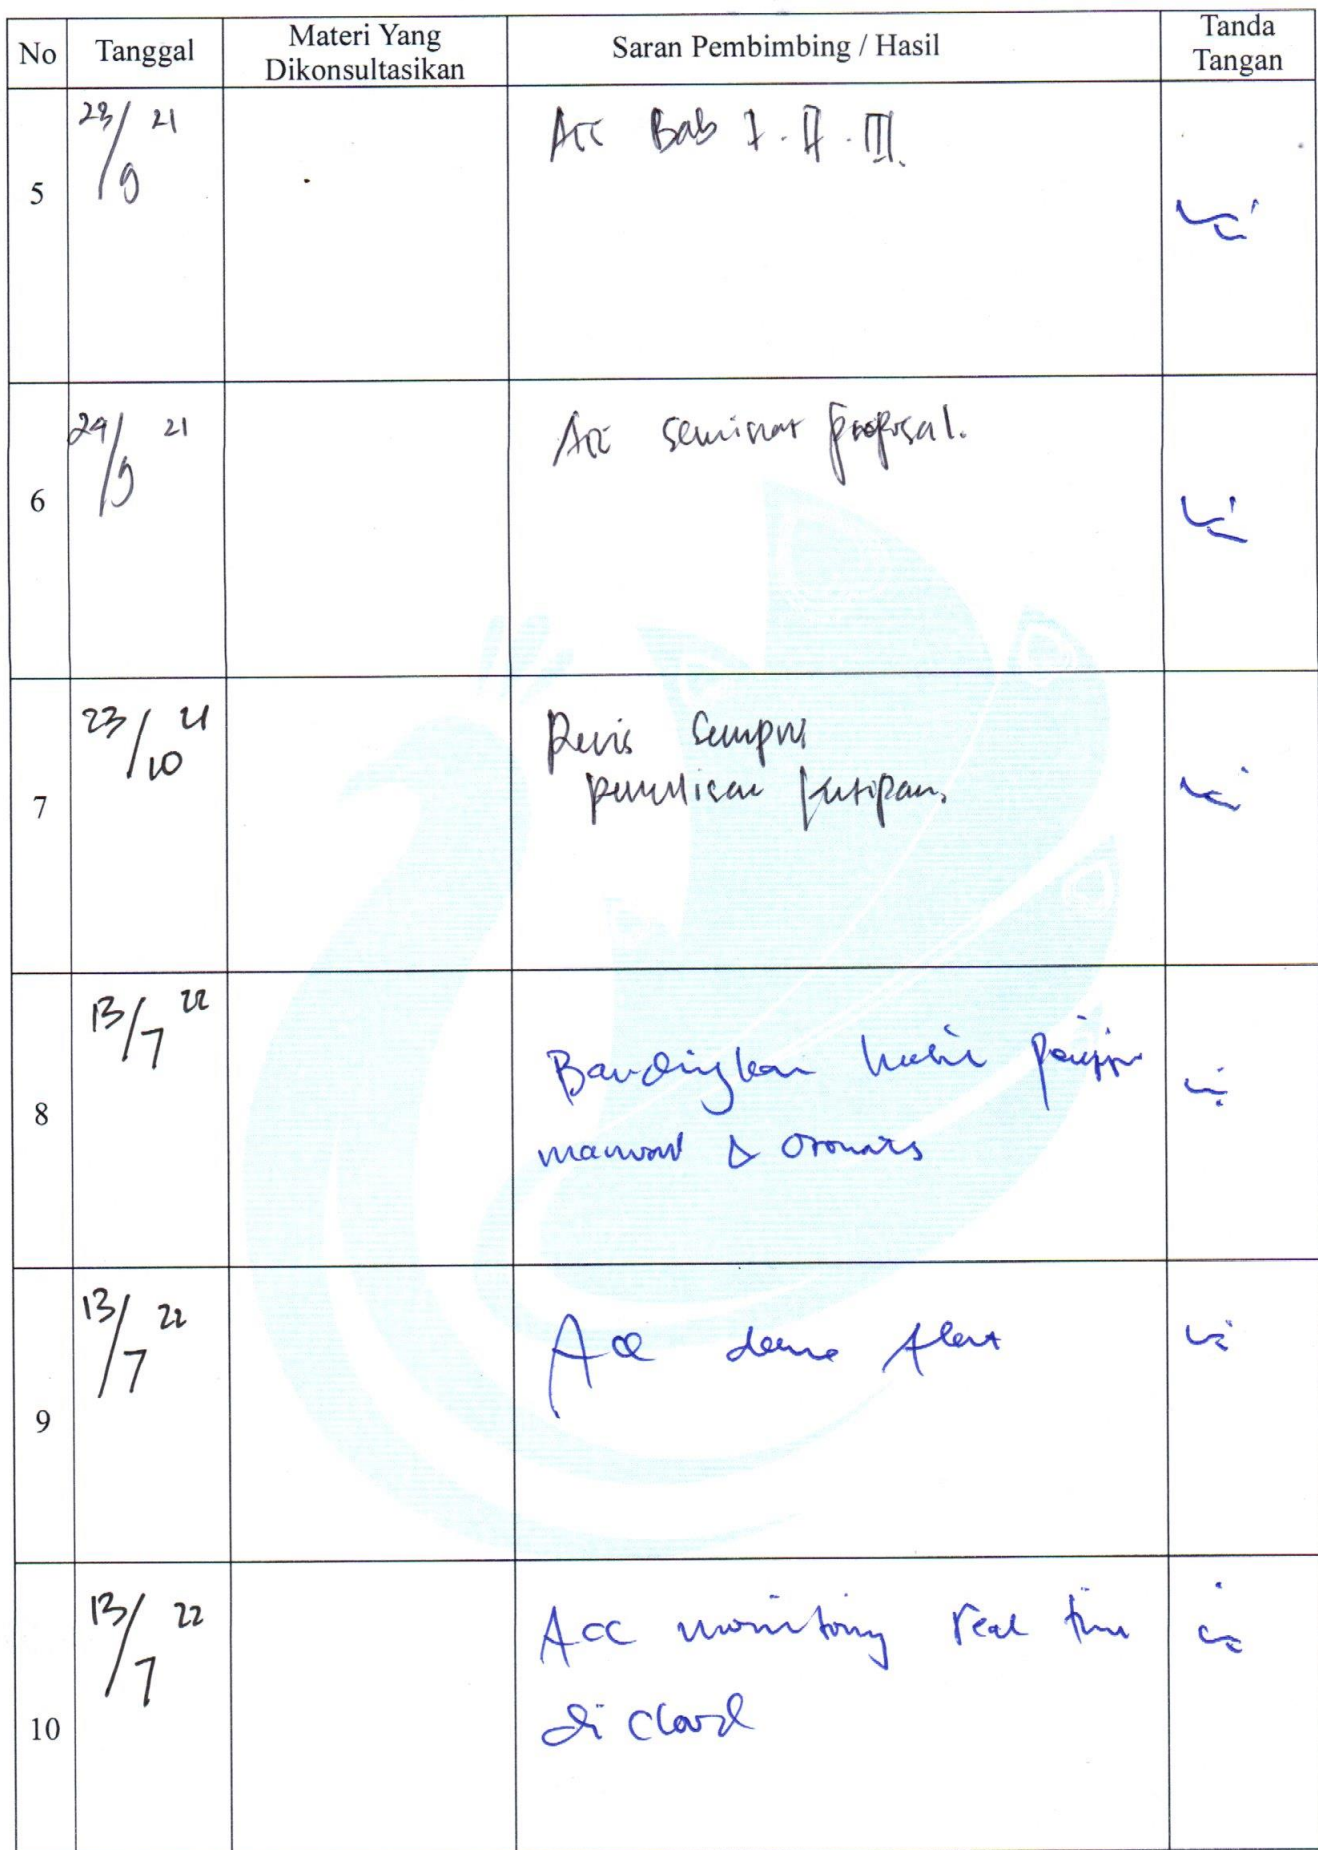 No Tanggal Materi Yang Dikonsultasikan Saran Pembimbing / Hasil Tanda Tangan
5 23/9 21 Acc Bab I. II. III.
6 24/9 21 Acc seminar proposal.
7 23/10 21 Revis Sempro
penulisan kutipan.
8 13/7 22 Bandingkan hasil
manual & otomatis
9 13/7 22 Acc alert
10 13/7 22 Acc monitoring real time
di cloud